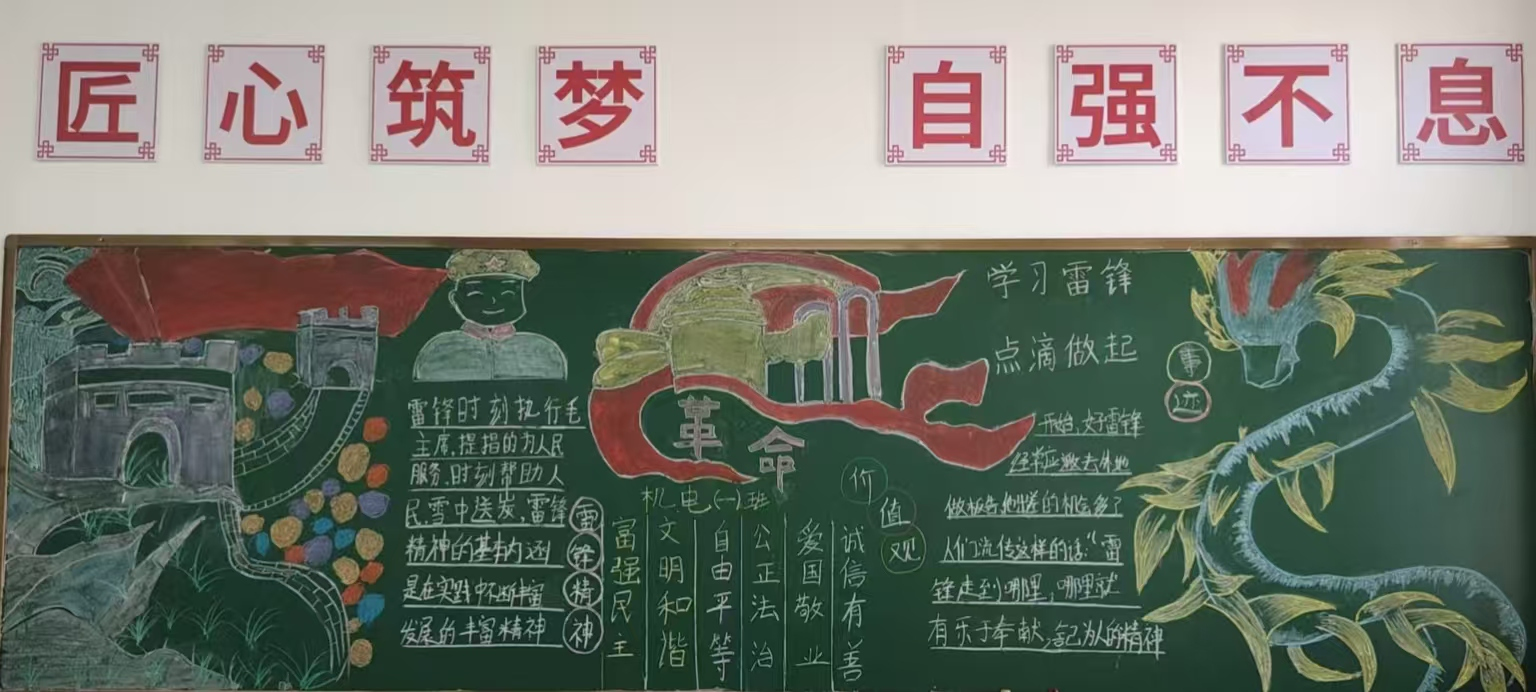 匠心筑梦 自强不息
雷锋时刻执行毛
主席,提指的为人民
服务,时刻帮助人
民,雪中送炭,雷锋
精神的基本内涵
是在实践中不断丰富
发展的丰富精神
雷锋精神
革命
机电(一)班
富强民主
文明和谐
自由平等
公正法治
爱国敬业
诚信有善
价值观
学习雷锋
点滴做起
事迹
开始,好雷锋
做报告,他出差的机会多了
人们流传这样的话:"雷
锋走到哪里,哪里就
有乐于奉献,舍己为人的精神